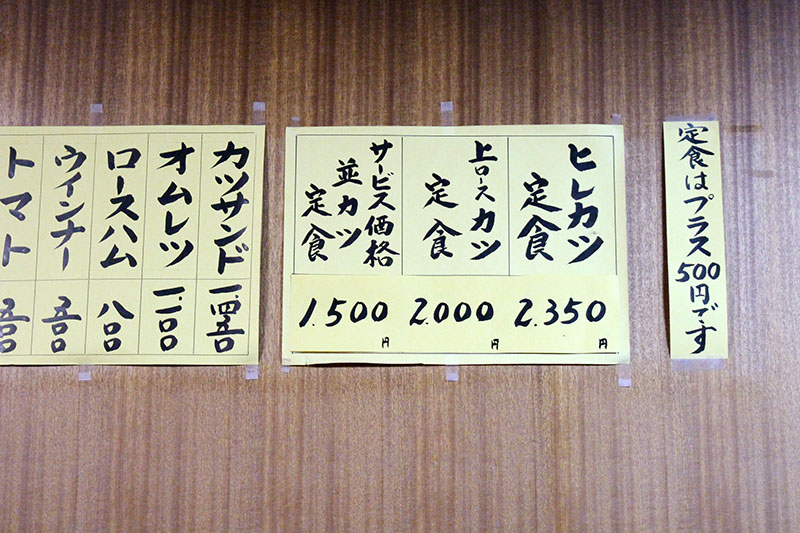 定食はプラス500円です
ヒレカツ
定食
2.350円
上ロースカツ
定食
2.000円
サービス価格
並カツ
定食
1.500円
カツサンド 一.四五〇
オムレツ
ロースハム 八〇〇
ウインナー 五〇〇
トマト 五〇〇